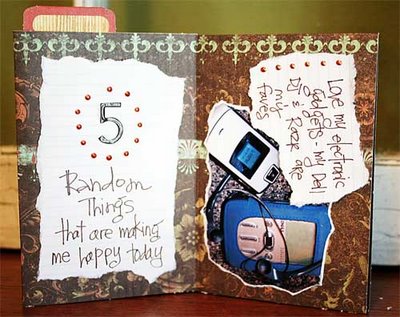 5
Random
Things
that are making
me happy today
Love my electronic
Gadgets - my Dell
DJ & Razor are
my
faves